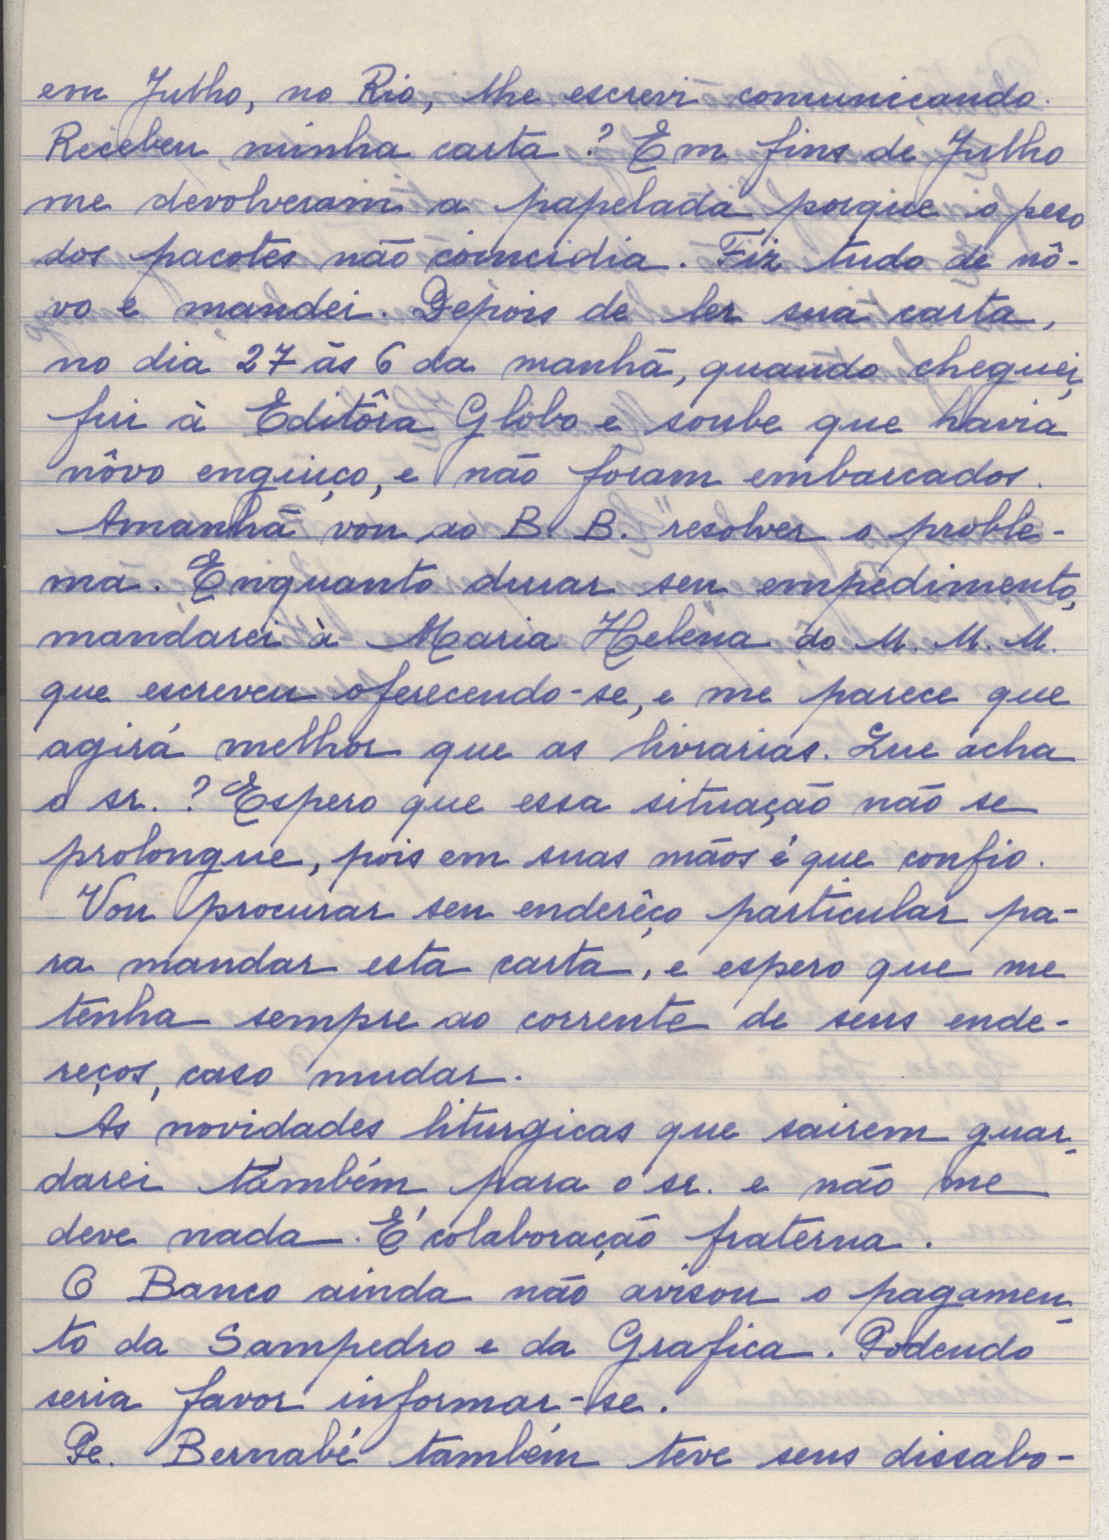 em Julho, no Rio, lhe escrevi comunicando.
Recebeu minha carta? Em fins de Julho
me devolveram a papelada porque o peso
dos pacotes não coincidia. Fiz tudo de nô-
vo e mandei. Depois de ler sua carta,
no dia 27 às 6 da manhã, quando cheguei,
fui à Editôra Globo e soube que havia
nôvo enguiço, e não foram embarcados.
Amanhã vou ao B. B. resolver o proble-
ma. Enquanto durar seu empedimento,
mandarei à Maria Helena do M. M. M.
que escreveu oferecendo-se, e me parece que
agirá melhor que as livrarias. Que acha
o sr. ? Espero que essa situação não se
prolongue, pois em suas mãos é que confio.
Vou procurar seu enderêço particular pa-
ra mandar esta carta, e espero que me
tenha sempre ao corrente de seus ende-
reços, caso mudar.
As novidades liturgicas que sairem guar-
darei também para o sr. e não me
deve nada. É colaboração fraterna.
O Banco ainda não avisou o pagamen-
to da Sampedro e da Grafica. Podendo
seria favor informar-se.
Pe. Bernabé também teve seus dissabo-